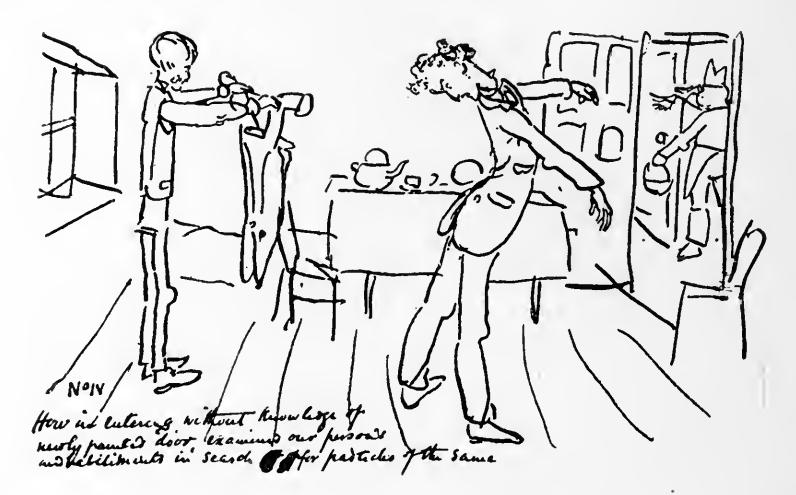 No IV
How in entering without knowledge of
newly painted door examined our persons
and habiliments in search for particles of the same